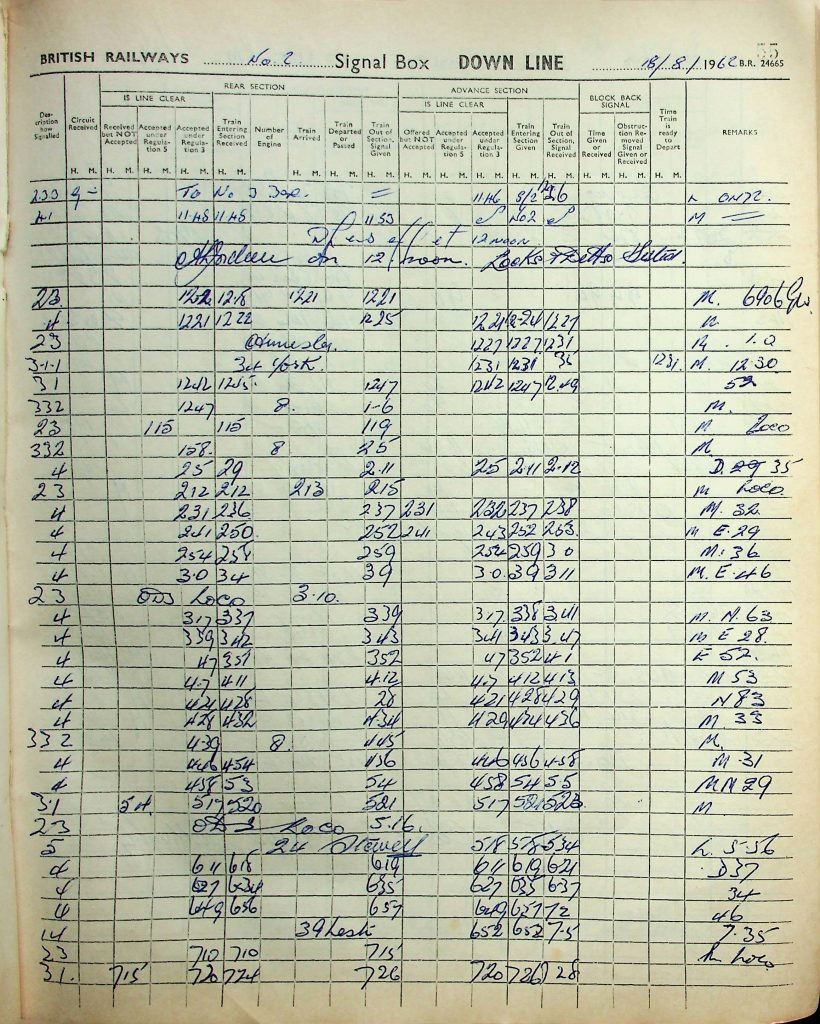 55
BRITISH RAILWAYS No. 2 Signal Box DOWN LINE 18/8/1962 B.R. 24665
REAR SECTION ADVANCE SECTION BLOCK BACK SIGNAL
IS LINE CLEAR IS LINE CLEAR
Description how Signalled Circuit Received Received but NOT Accepted Accepted under Regulation 5 Accepted under Regulation 3 Train Entering Section Received Number of Engine Train Arrived Train Departed or Passed Train Out of Section, Signal Given Offered but NOT Accepted Accepted under Regulation 5 Accepted under Regulation 3 Train Entering Section Given Train Out of Section, Signal Received Time Given or Received Obstruction Removed Signal Given or Received Time Train is ready to Depart REMARKS
H. M. H. M. H. M. H. M. H. M. H. M. H. M. H. M. H. M. H. M. H. M. H. M. H. M. H. M. H. M. H. M.
To No 3 1146
4.1 11.48 11.48 11 53 No2 M
12 noon
on 12 noon.
23 1218 1221 1221 M. 6906
4 1221 1222 1225 1221 12-24 1227
23 1227 1227 1231 1.0
3-1-1 34 York. 1231 1231 35 1231. M. 12.30
31 1242 1245 1247 1242 1247 12.49 52
332 1247 8. 1-6 M.
23 115 115 119 M Loco
332 158. 8 25 M
4 25 29 2.11 25 2.11 2.12 D. 29 35
23 212 212 213 215 M Loco.
4 231 236 237 231 232 237 238 M. 32
4 241 250. 252 241 243 252 253. M E. 29
4 254 258 259 254 259 3 0 M. 36
4 3.0 34 39 3.0. 39 311 M. E 46
23 Loco 3.10.
4 317 337 339 317. 338 341 M. N. 63
4 339 342 343 341 343 347 M E 28.
4 47 351 352 47 352 41 E 52.
4 4.7 411 4.12 4.7 412 413 M 53
4 421 428 28 421 428 429 N 83
4 429 432 434 429 434 436 M 33
332 439 8. 445 M.
4 446 454 456 446 456 458 M. 31
4 458 53 54 458 54 55 M N 29
3.1 5 4. 517 520 521 517 521 523 M
23 Loco 5.16.
5 24 518 518 534 5-56
4 611 618 619 611 619 621 D37
4 627 634 635 627 635 637 34
4 649 656 657 649 657 72 46
14 39 652 652 7.5 7.35
23 710 710 715 Loco
31. 715 720 724 726 720 726 728